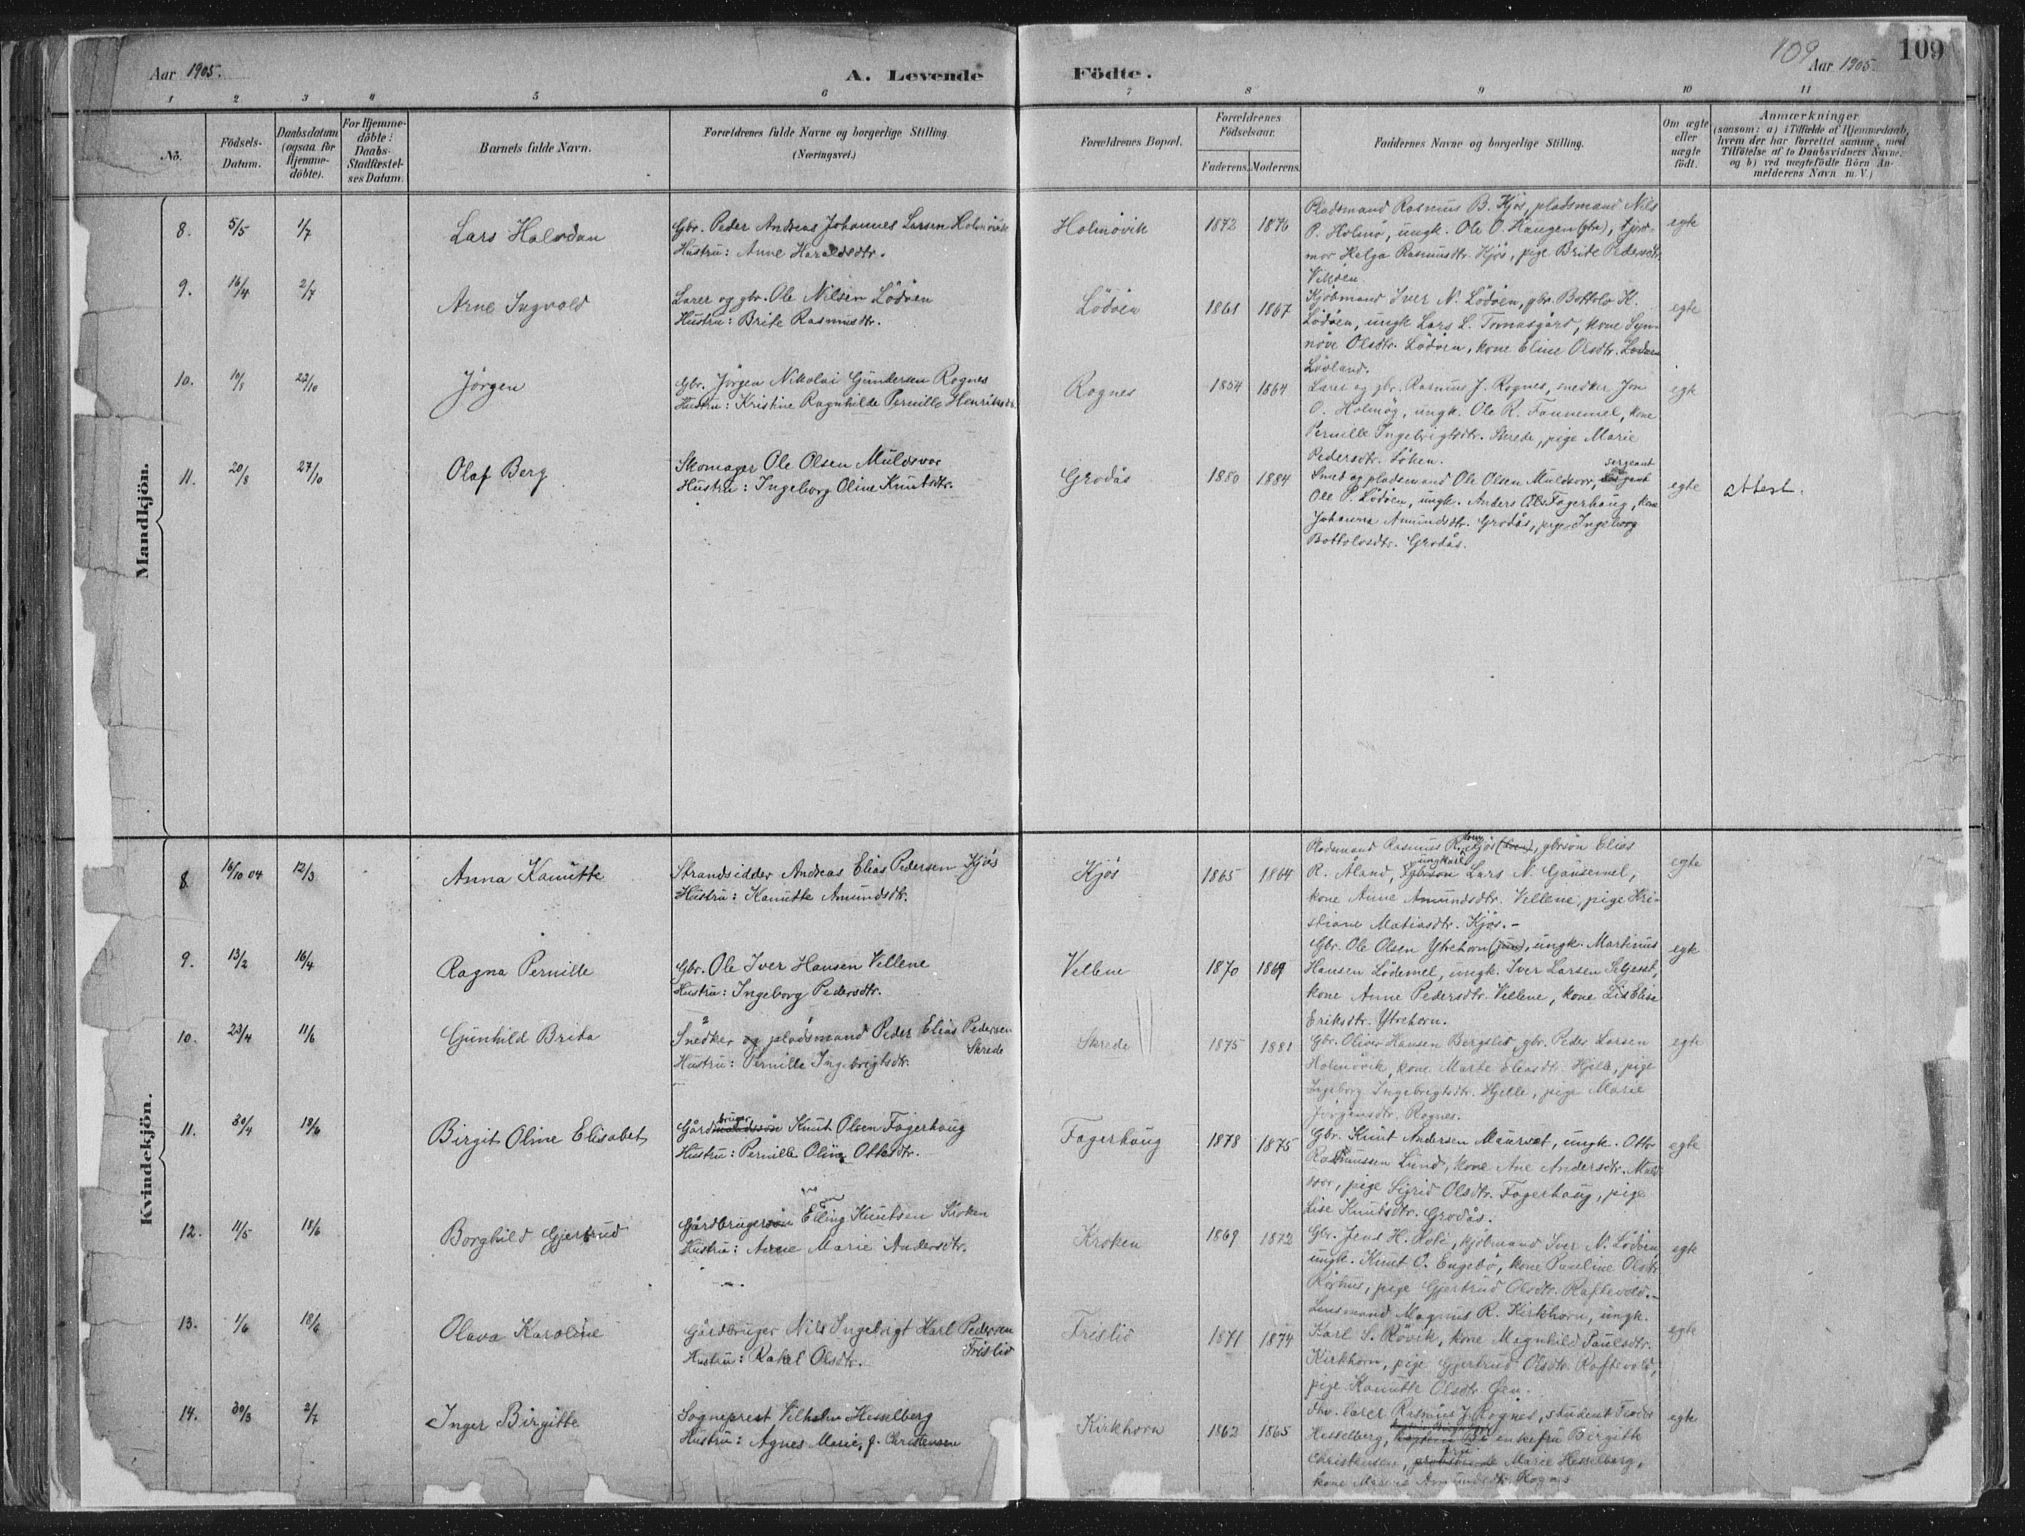 Aar 1905.
A. Levende
Födte.
109
Aar 1905.
109
1 2 3 4 5 6 7 8 9 10 11
No.
Födsels-Datum.
Daabsdatum (ogsaa for Hjemmedöbte).
For Hjemmedöbte: Daabs-Stadfæstelses Datum.
Barnets fulde Navn.
Forældrenes fulde Navne og borgerlige Stilling.
(Næringsvei.)
Forældrenes Bopæl.
Forældrenes Födselsaar.
Faderens. Moderens.
Faddernes Navne og borgerlige Stilling.
Om ægte eller uægte födt.
Anmærkninger
(saasom: a) i Tilfælde af Hjemmedaab, hvem der har forrettet samme, med Tilföielse af to Daabsvidners Navne, og b) ved uægtefödte Börn Anmelderens Navn m. V.)
Mandkjön.
8. 5/5 1/7 Lars Halvdan
Gbr. Peder Andreas Johannes Larsen Holmövik
Hustru: Anne Haraldsdtr.
Holmövik 1872 1876
Pladsmand Rasmus B. Kjös, pladsmand Nils
P. Holmö, ungk. Ole O. Haugen (gbr), jord-
mor Helga Rasmusdtr. Kjös, pige Brite Pedersdtr.
Viköen
egte
9. 16/4 2/7 Arne Ingvald
Lærer og gbr. Ole Nilsen Lödöen
Hustru: Brite Rasmusdtr.
Lödöen 1861 1867
Kjöbmand Iver N. Lödöen, gbr. Bottolv K.
Lödöen, ungk Lars L. Tomasgård, kone Syn-
növe Olsdtr. Lödöen, kone Eline Olsdtr.
Lövland.
egte
10. 10/8 22/10 Jörgen
Gbr. Jörgen Nikolai Gundersen Rognes
Hustru: Kristine Ragnhilde Pernille Henriksdtr.
Rognes 1854 1864
Lærer og gbr. Rasmus J. Rognes, snedker Jon
O. Holmöy, ungk. Ole R. Fannemel, kone
Pernille Ingebrigtsdtr. Skrede, pige Marie
Pedersdtr. Löken.
egte
11. 20/8 27/10 Olaf Berg
Skomager Ole Olsen Muldsvor
Hustru: Ingeborg Oline Knutsdtr.
Grodås 1880 1884
Smed og pladsmand Ole Olsen Muldsvor, sergeant
Ole P. Lödöen, ungk. Anders Ols. Fagerhaug, kone
Johanna Amundsdtr. Grodås, pige Ingeborg
Bottolvsdtr. Grodås.
egte
attest.
Kvindekjön.
8 16/10 04 12/3 Anna Kamitte
Strandsidder Andreas Elias Pedersen Kjös
Hustru: Kamitte Amundsdtr.
Kjös 1865 1864
Pladsmand Rasmus R. Kjös, gbrsön Elias
R. Åland, ungkarl Lars N. Gausemel,
kone Anne Amundsdtr. Vellene, pige Kri-
stiane Matiasdtr. Kjös.-
egte
9. 13/2 16/4 Ragna Pernille
Gbr. Ole Iver Hansen Vellene
Hustru: Ingeborg Pedersdtr.
Vellene 1870 1869
Gbr. Ole Olsen Ytrehorn (jun), ungk. Martinus
Hansen Lödemel, ungk. Iver Larsen Seljeset,
kone Anne Pedersdtr. Vellene, kone Lis Elise
Eriksdtr. Ytrehorn.
egte
10. 23/4 11/6 Gunhild Brita
Snedker og pladsmand Peder Elias Pedersen
Skrede
Hustru: Pernille Ingebrigtsdtr.
Skrede 1875 1881
Gbr. Oliver Hansen Bergslid, gbr. Peder Larsen
Holmövik, kone Marte Eliasdtr. Hjelle, pige
Ingeborg Ingebrigtsdtr. Hjelle, pige Marie
Jörgensdtr. Rognes.
egte
11. 30/4 18/6 Birgit Oline Elisabet
Gårdbruger Knut Olsen Fagerhaug
Hustru: Pernille Oline Ottesdtr.
Fagerhaug 1878 1875
Gbr. Knut Andersen Maurset, ungk. Otto
Rasmussen Lund, kone Ane Andersdtr. Muld-
svor, pige Sigrid Olsdtr. Fagerhaug, pige
Lise Knutsdtr. Grodås.
egte
12. 11/5 18/6 Borghild Gjertrud
Gårdbruger Elling Knutsen Kroken
Hustru: Anne Marie Andersdtr.
Kroken 1869 1872
Gbr. Jens H. , kjöbmand Iver N. Lödöen,
ungk. Knut O. Engebö, kone Pauline Olsdtr.
Rörhus, pige Gjertrud Olsdtr. Raftevold.-
egte
13. 1/6 18/6 Olava Karoline
Gårdbruger Nils Ingebrigt Karl Pedersen
Frislid
Hustru: Rakel Olsdtr.
Frislid 1871 1874
Lensmand Magnus R. Kirkhorn, ungk.
Karl S. Rövik, kone Magnhild Paulsdtr.
Kirkhorn, pige Gjertrud Olsdtr. Raftevold,
pige Kamitte Olsdtr. Öen.
egte
14. 30/3 2/7 Inger Birgitte
Sogneprest Vilhelm Hesselberg
Hustru: Agnes Marie, f. Christensen
Kirkhorn 1862 1865
lærer Rasmus J. Rognes, student Teodor
Hesselberg, enkefru Birgitte
Christensen, Marie Hesselberg,
kone Marie Amundsdtr. Rognes
egte